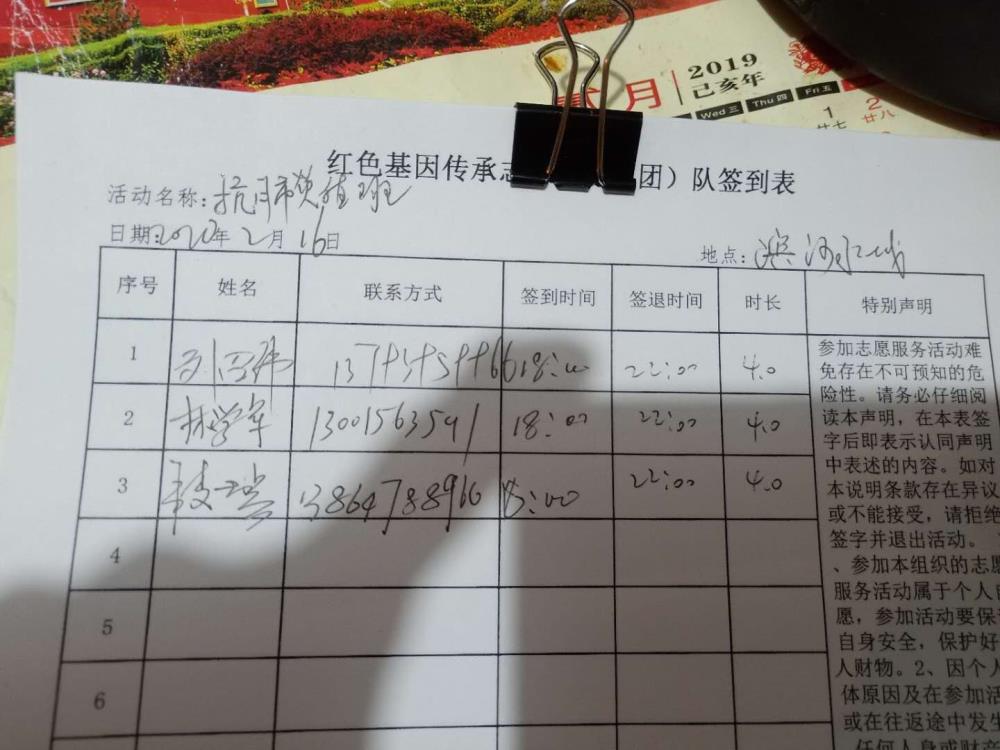 贰月
2019
己亥年
Wed 三 Thu 四 Fri 五
1 2
廿七 廿八
红色基因传承志 团）队签到表
活动名称：
日期：2020年2月16日
地点：滨河
序号 姓名 联系方式 签到时间 签退时间 时长 特别声明
1 18:00 22:00 4.0
2 林学军 13001563591 18:00 22:00 4.0
3 13864788910 18:00 22:00 4.0
4
5
6
参加志愿服务活动难
免存在不可预知的危
险性。请务必仔细阅
读本声明，在本表签
字后即表示认同声明
中表述的内容。如对
本说明条款存在异议
或不能接受，请拒绝
签字并退出活动。
、参加本组织的志愿
服务活动属于个人自
愿，参加活动要保证
自身安全，保护好
人财物。2、因个人
体原因及在参加活
或在往返途中发生
任何人身或财产